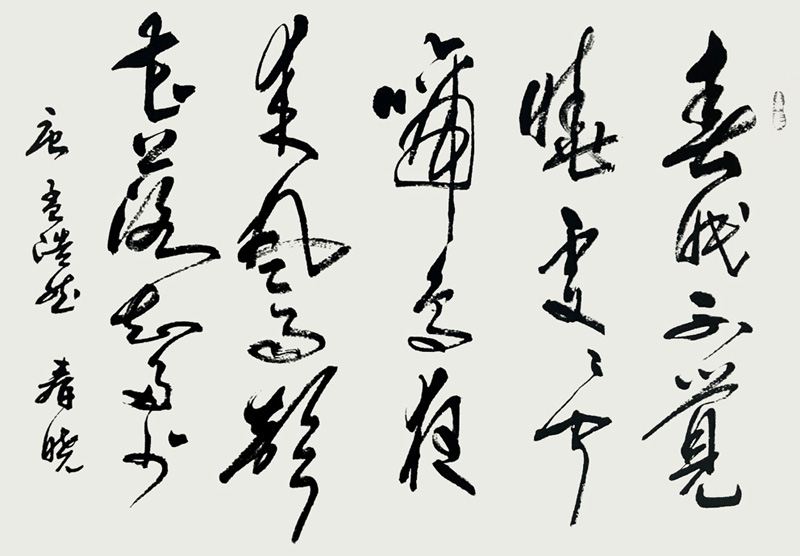 春眠不覺
曉處〻聞
啼鳥夜
來風雨聲
花落知多少
唐 孟浩然 春曉